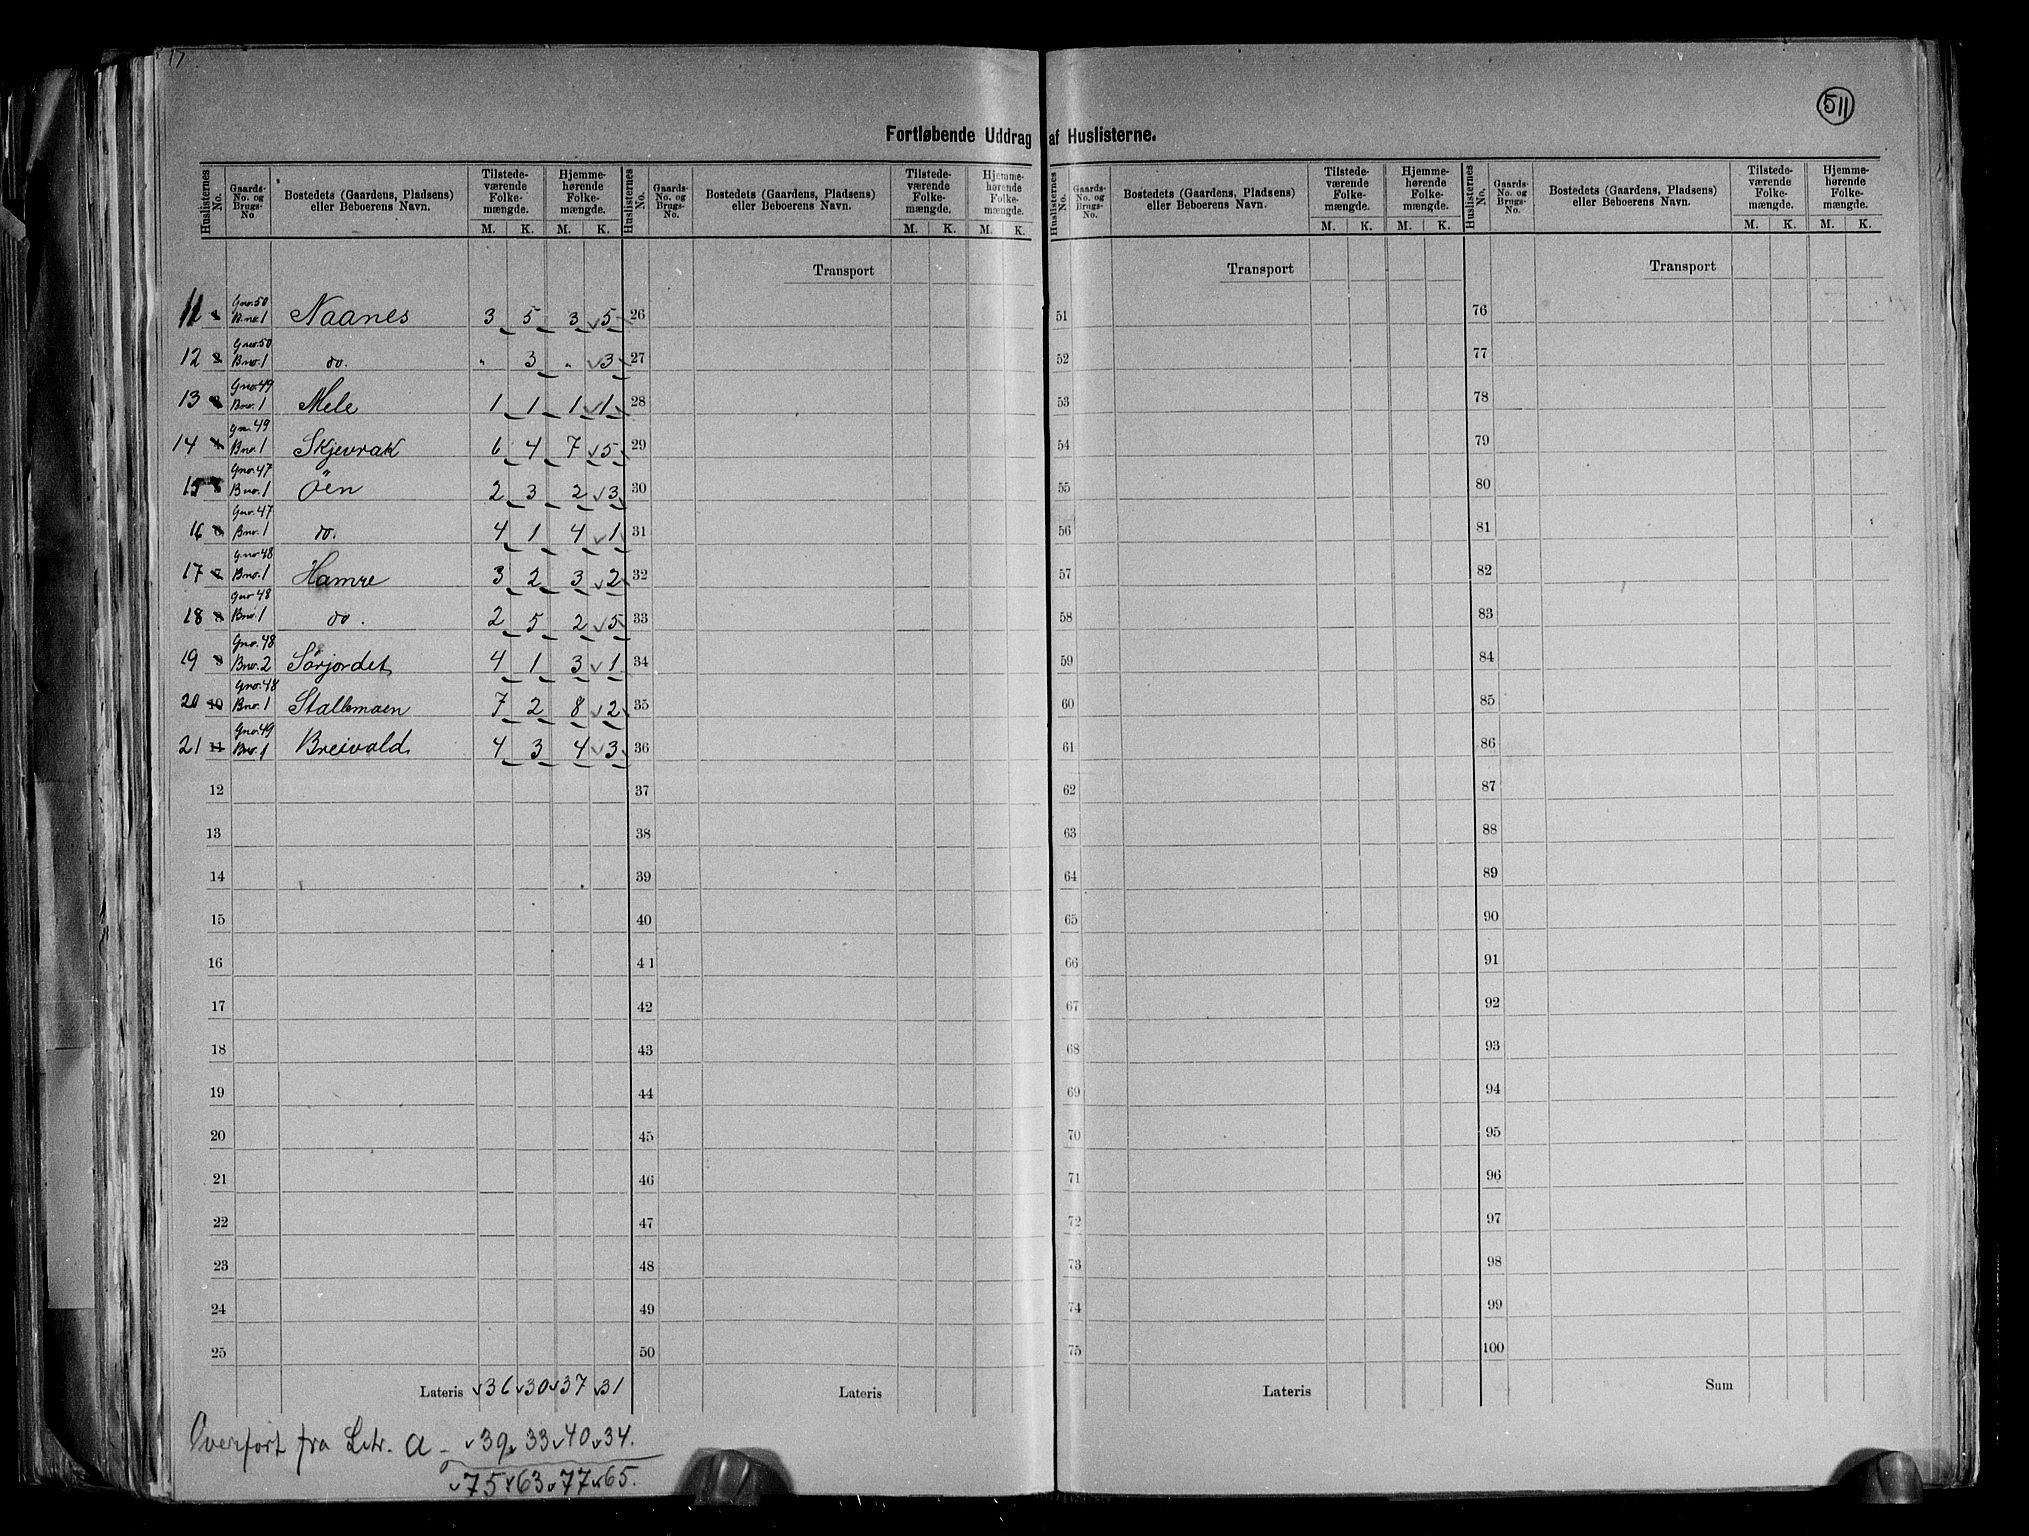 17
511
Fortløbende Uddrag af Huslisterne.
Huslisternes No. | Gaards-No. og Brugs-No. | Bostedets (Gaardens, Pladsens) eller Beboerens Navn. | Tilstedeværende Folkemængde. M. K. | Hjemmehørende Folkemængde. M. K.
Huslisternes No. | Gaards-No. og Brugs-No. | Bostedets (Gaardens, Pladsens) eller Beboerens Navn. | Tilstedeværende Folkemængde. M. K. | Hjemmehørende Folkemængde. M. K.
Huslisternes No. | Gaards-No. og Brugs-No. | Bostedets (Gaardens, Pladsens) eller Beboerens Navn. | Tilstedeværende Folkemængde. M. K. | Hjemmehørende Folkemængde. M. K.
Huslisternes No. | Gaards-No. og Brugs-No. | Bostedets (Gaardens, Pladsens) eller Beboerens Navn. | Tilstedeværende Folkemængde. M. K. | Hjemmehørende Folkemængde. M. K.
Transport Transport Transport
11 Gno. 50 Bno. 1 Naanes 3 5 3 5 26 51 76
12 Gno. 50 Bno. 1 do. " 3 " 3 27 52 77
13 Gno. 49 Bno. 1 Mele 1 1 1 1 28 53 78
14 Gno. 49 Bno. 1 Skjevrak 6 4 7 5 29 54 79
15 Gno. 47 Bno. 1 Öen 2 3 2 3 30 55 80
16 Gno. 47 Bno. 1 do. 4 1 4 1 31 56 81
17 Gno. 48 Bno. 1 Hamre 3 2 3 2 32 57 82
18 Gno. 48 Bno. 1 do. 2 5 2 5 33 58 83
19 Gno. 48 Bno. 2 Sörjordet 4 1 3 1 34 59 84
20 10 Gno. 48 Bno. 1 Stallemoen 7 2 8 2 35 60 85
21 11 Gno. 49 Bno. 1 Breivold 4 3 4 3 36 61 86
12 37 62 87
13 38 63 88
14 39 64 89
15 40 65 90
16 41 66 91
17 42 67 92
18 43 68 93
19 44 69 94
20 45 70 95
21 46 71 96
22 47 72 97
23 48 73 98
24 49 74 99
25 50 75 100
Lateris 36 30 37 31 Lateris Lateris Sum
Overfört fra Litr. a - 39 33 40 34.
75 63 77 65.